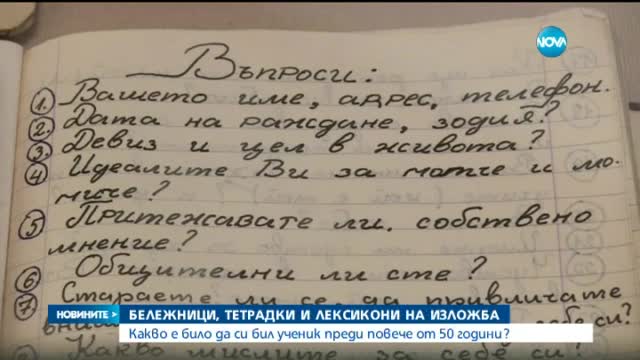 NOVA
Въпроси:
1. Вашето име, адрес, телефон.
2. Дата на раждане, зодия?
3. Девиз и цел в живота?
4 Идеалите Ви за момче и мо-
миче?
5 Притежавате ли собствено
мнение?
6 Общителни ли сте?
7 Стараете ли се, да привличате
себе си?
Какво мислите за себе си?
НОВИНИТЕ
БЕЛЕЖНИЦИ, ТЕТРАДКИ И ЛЕКСИКОНИ НА ИЗЛОЖБА
КАКВО Е БИЛО ДА СИ БИЛ УЧЕНИК ПРЕДИ ПОВЕЧЕ ОТ 50 ГОДИНИ?